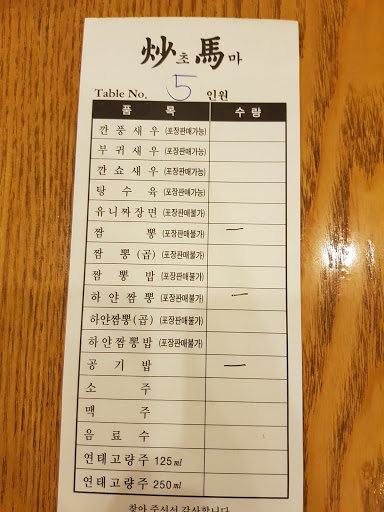 炒초馬마
Table No. 5 인원
품 목 수 량
깐풍새우 (포장판매가능)
부귀새우 (포장판매가능)
깐쇼새우 (포장판매가능)
탕수육 (포장판매가능)
유니짜장면 (포장판매불가)
짬뽕 (포장판매불가) 一
짬뽕(곱) (포장판매불가)
짬뽕밥 (포장판매불가)
하얀짬뽕 (포장판매불가) 一
하얀짬뽕(곱) (포장판매불가)
하얀짬뽕밥 (포장판매불가)
공기밥 一
소주
맥주
음료수
연태고량주 125㎖
연태고량주 250㎖
찾아 주셔서 감사합니다